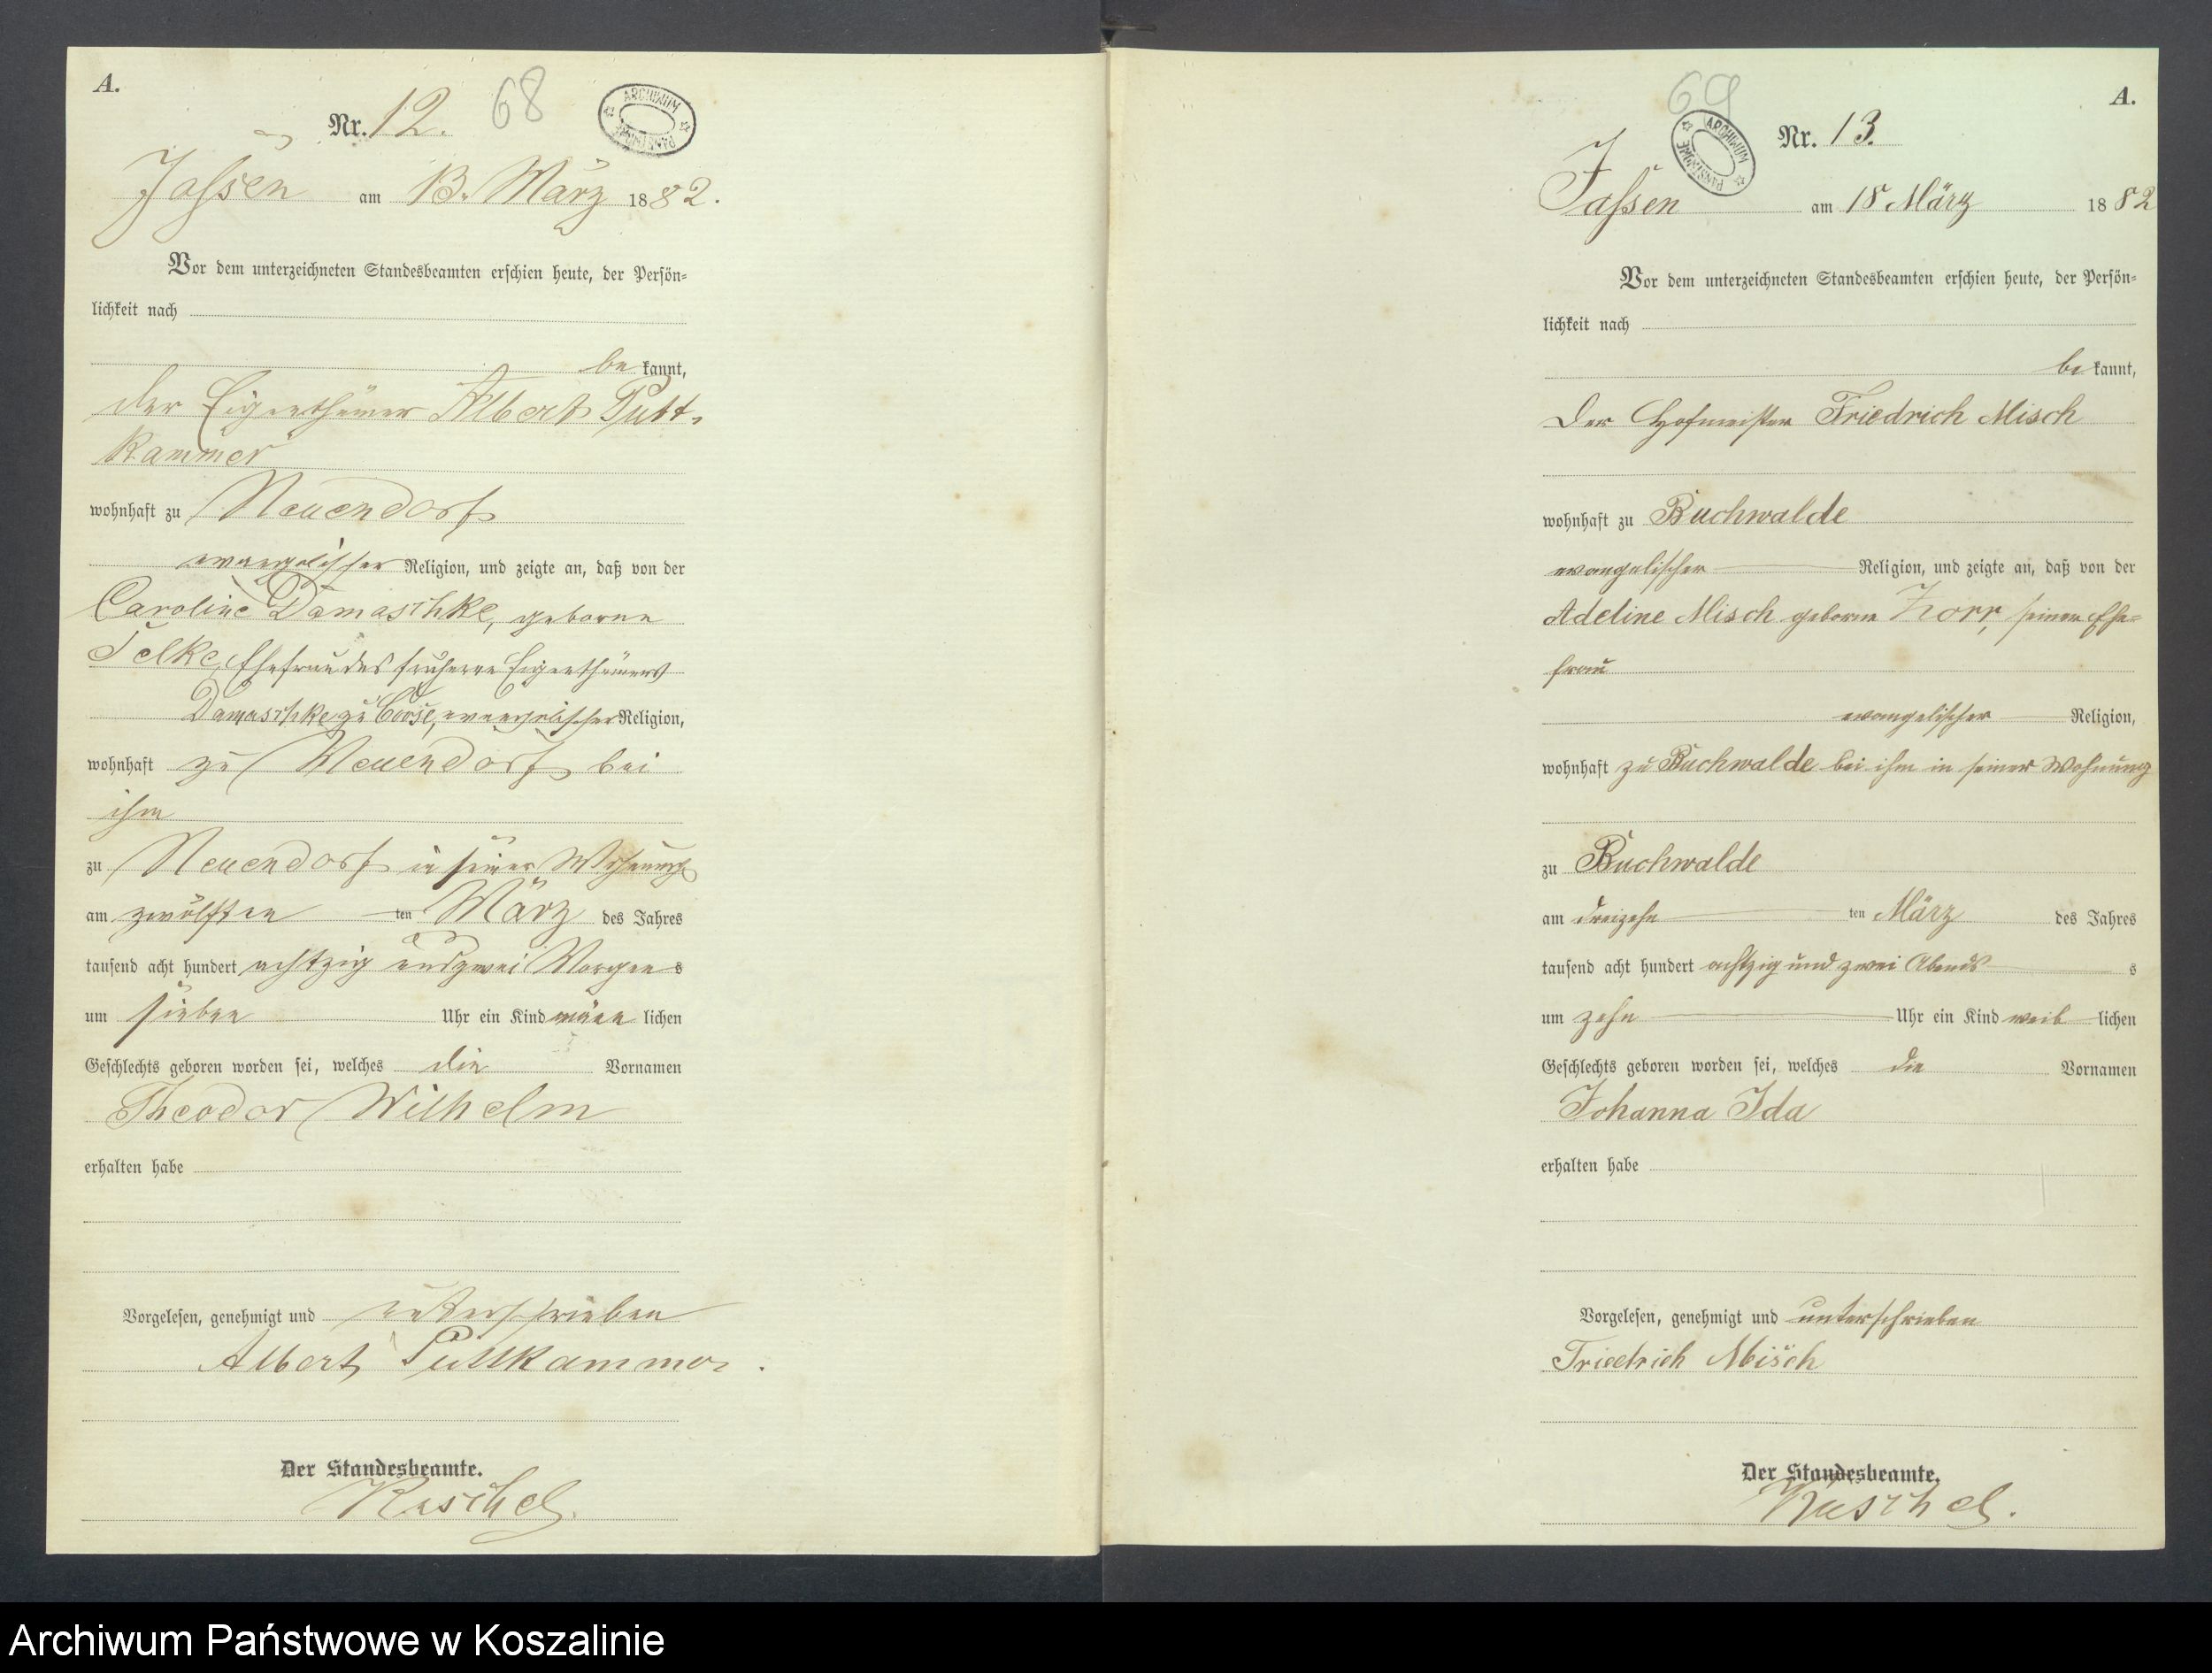 A.
68
ARCHIWUM PAŃSTWOWE
Nr. 12.
Jassen am 13. März 1882.
Vor dem unterzeichneten Standesbeamten erschien heute, der Persön-
lichkeit nach
be kannt,
der Eigenthümer Albert Putt-
kammer
wohnhaft zu Neuendorf
evangelischer Religion, und zeigte an, daß von der
Caroline Damaschke, geborne
Selke, Ehefrau des früheren Eigenthümers
Damaschke zu Coose, evangelischer Religion,
wohnhaft zu Neuendorf bei
ihm
zu Neuendorf in seiner Wohnung
am zwölften ten März des Jahres
tausend acht hundert achtzig und zwei Morgens
um sieben Uhr ein Kind männ lichen
Geschlechts geboren worden sei, welches die Vornamen
Theodor Wilhelm
erhalten habe
Vorgelesen, genehmigt und unterschrieben
Albert Puttkammer.
Der Standesbeamte.
69
ARCHIWUM PAŃSTWOWE
A.
Nr. 13.
Jassen am 18 März 1882
Vor dem unterzeichneten Standesbeamten erschien heute, der Persön-
lichkeit nach
be kannt,
Der Hofmeister Friedrich Misch
wohnhaft zu Buchwalde
evangelischer Religion, und zeigte an, daß von der
Adeline Misch geborne Zorr, seiner Ehe-
frau
evangelischer Religion,
wohnhaft zu Buchwalde bei ihm in seiner Wohnung
zu Buchwalde
am dreizehn ten März des Jahres
tausend acht hundert achtzig und zwei Abends s
um zehn Uhr ein Kind weib lichen
Geschlechts geboren worden sei, welches die Vornamen
Johanna Ida
erhalten habe
Vorgelesen, genehmigt und unterschrieben
Friedrich Misch
Der Standesbeamte.
Archiwum Państwowe w Koszalinie